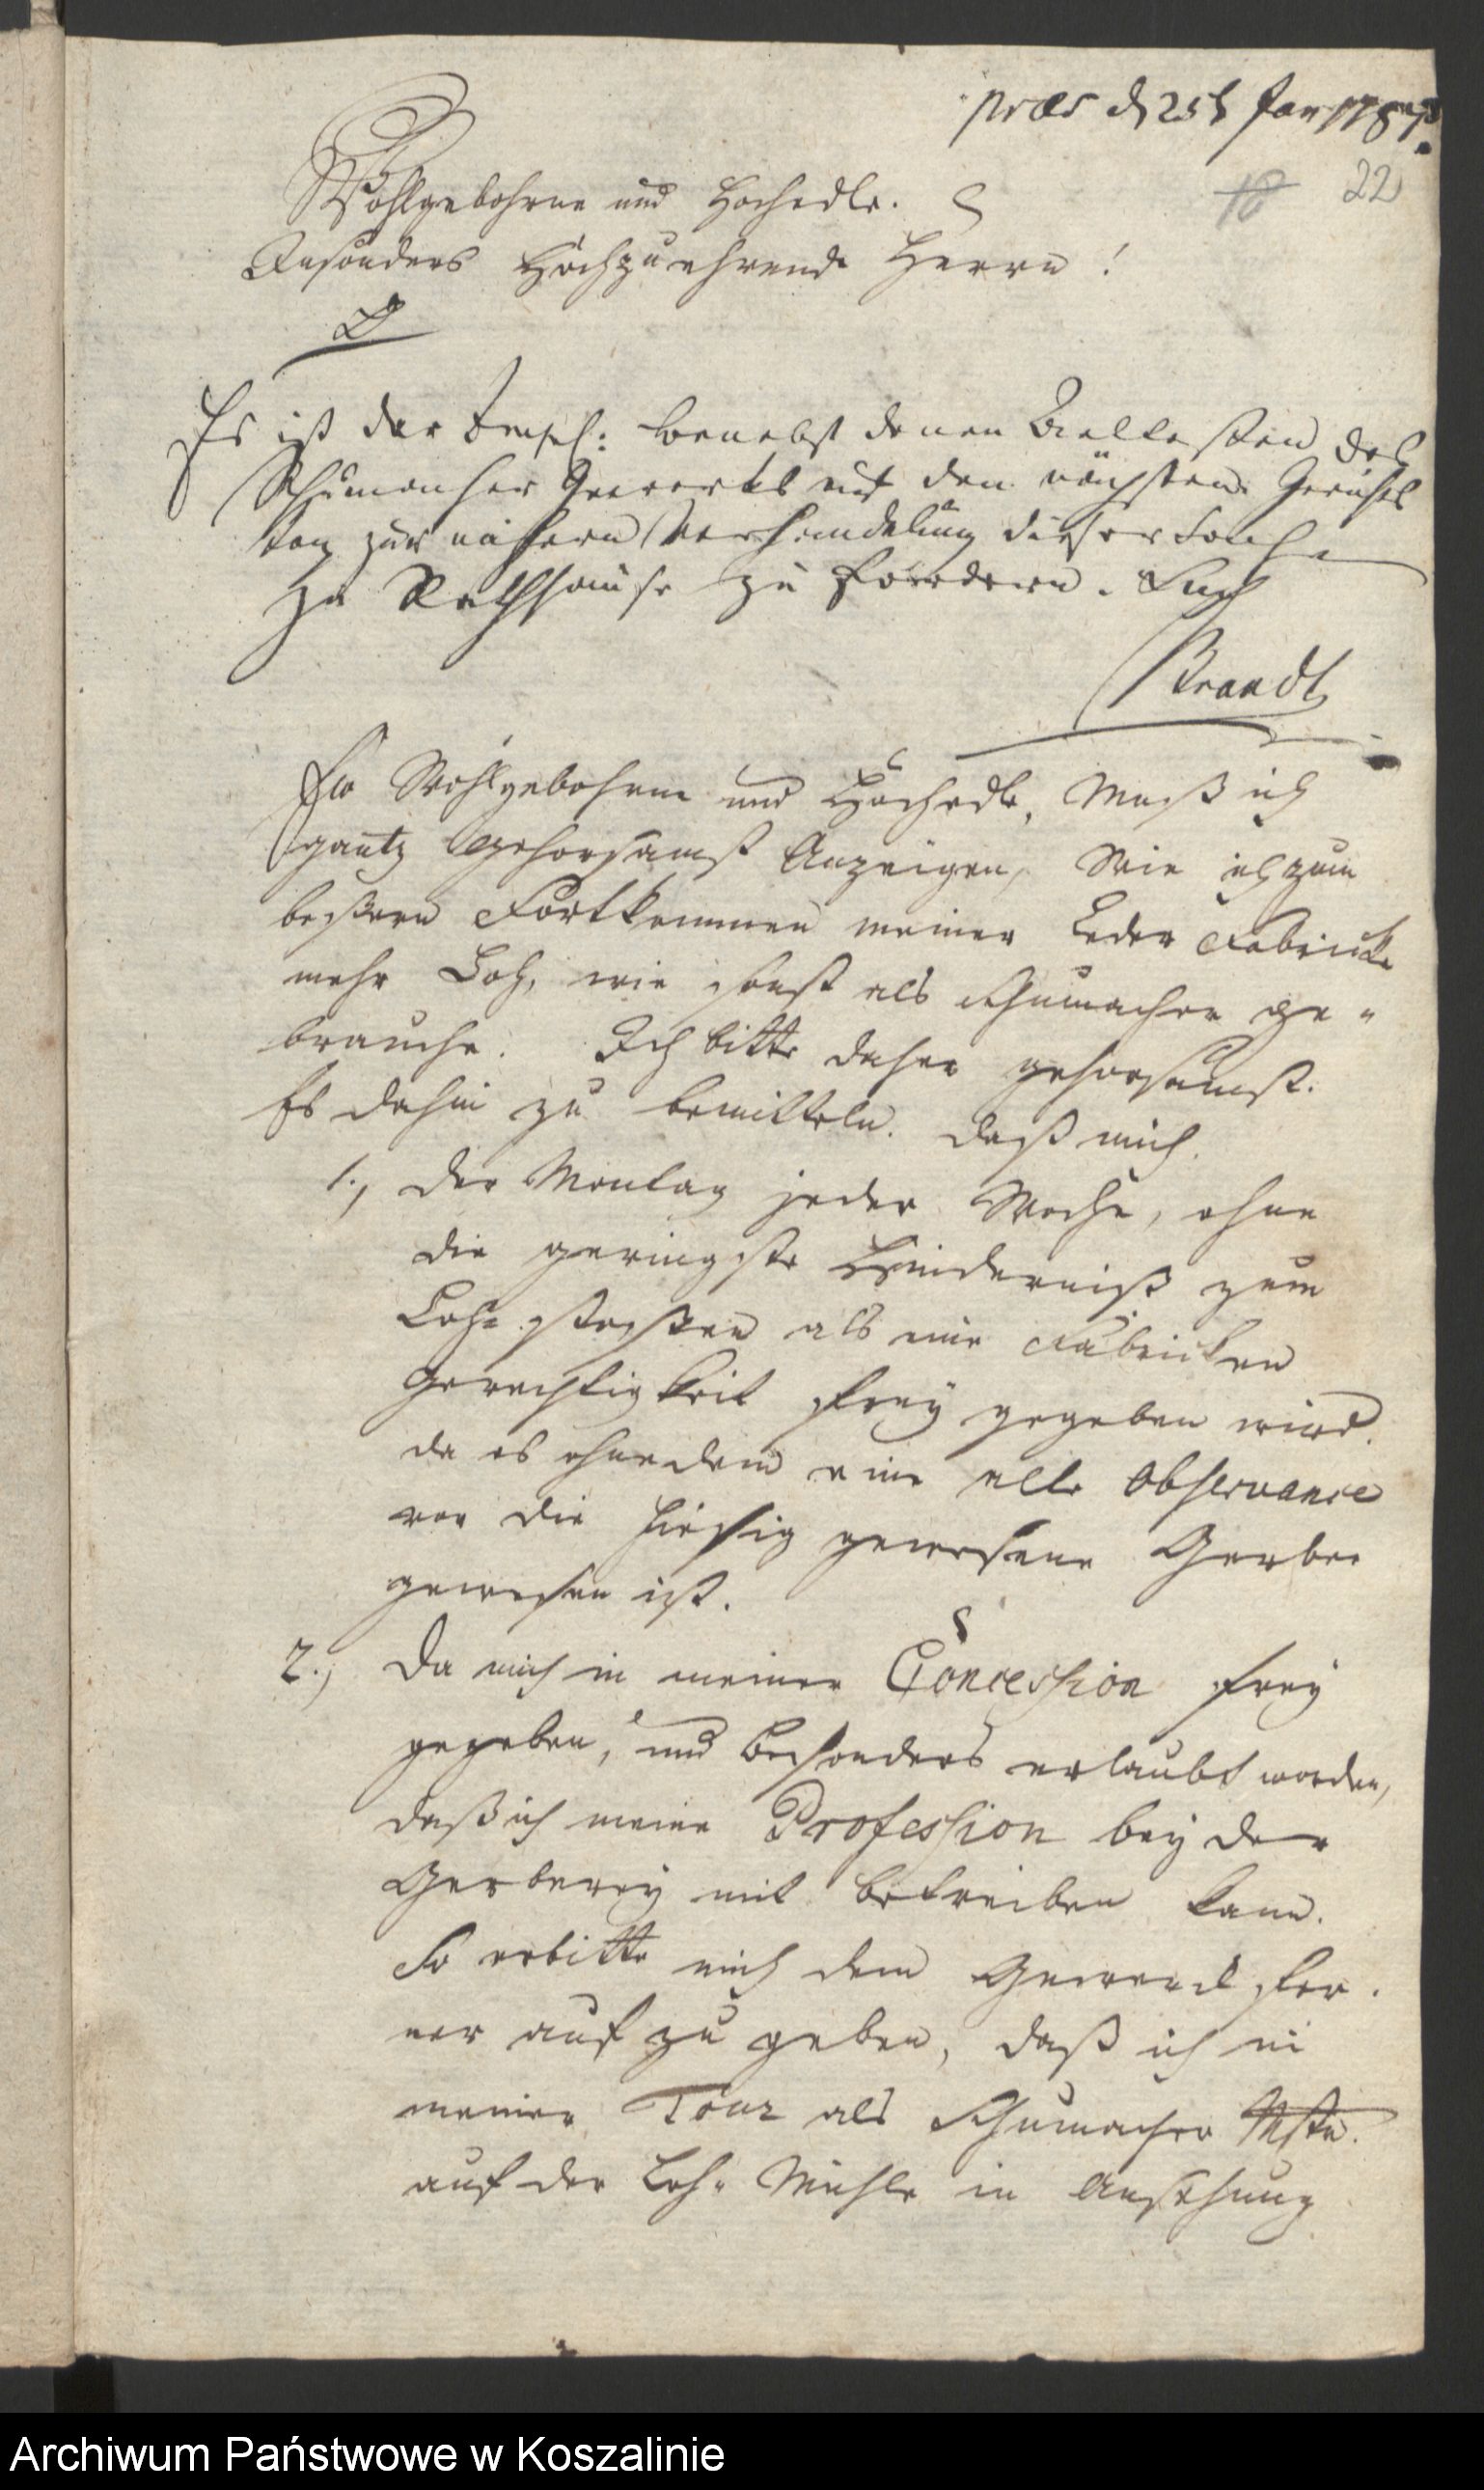 præs d 25t Jan 1787.
Wohlgebohrne und Hochedle.
18 22
Insonders Hochzuehrende Herren!
Es ist der Impl: benebst denen Aeltesten des
Schumacher Gewerks auf den nächsten Gerichts
tag zur nähern Verhandelung dieser Sache
zu Rathhause zu fordern.
Brandt
Ew Wohlgebohrne und Hochedle, Muß ich
gantz gehorsamst Anzeigen, Wie ich zum
beßern Fortkommen meiner Leder Fabricke
mehr Loh, wie sonst als Schumacher ge-
brauche. Ich bitte daher gehorsamst.
Es dahin zu bemitteln. daß mich.
1., der Montag jeder Woche, ohne
die geringste Hinderniß zum
Loh stoßen als eine Fabricken
Gerechtigkeit frey gegeben wird.
da es ohnedem eine alte Observance
vor die hiesig gewesene Gerber
gewesen ist.
2., Da mich in meiner Concession frey
gegeben, und besonders erlaubt worden,
daß ich meine Profession bey der
Gerberey mit betreiben kann.
So erbitte mich dem Gewerck fer-
ner auf zu geben, daß ich in
meiner Tour als Schumacher Mstr.
auf der Loh- Mühle in Ansehung
Archiwum Państwowe w Koszalinie